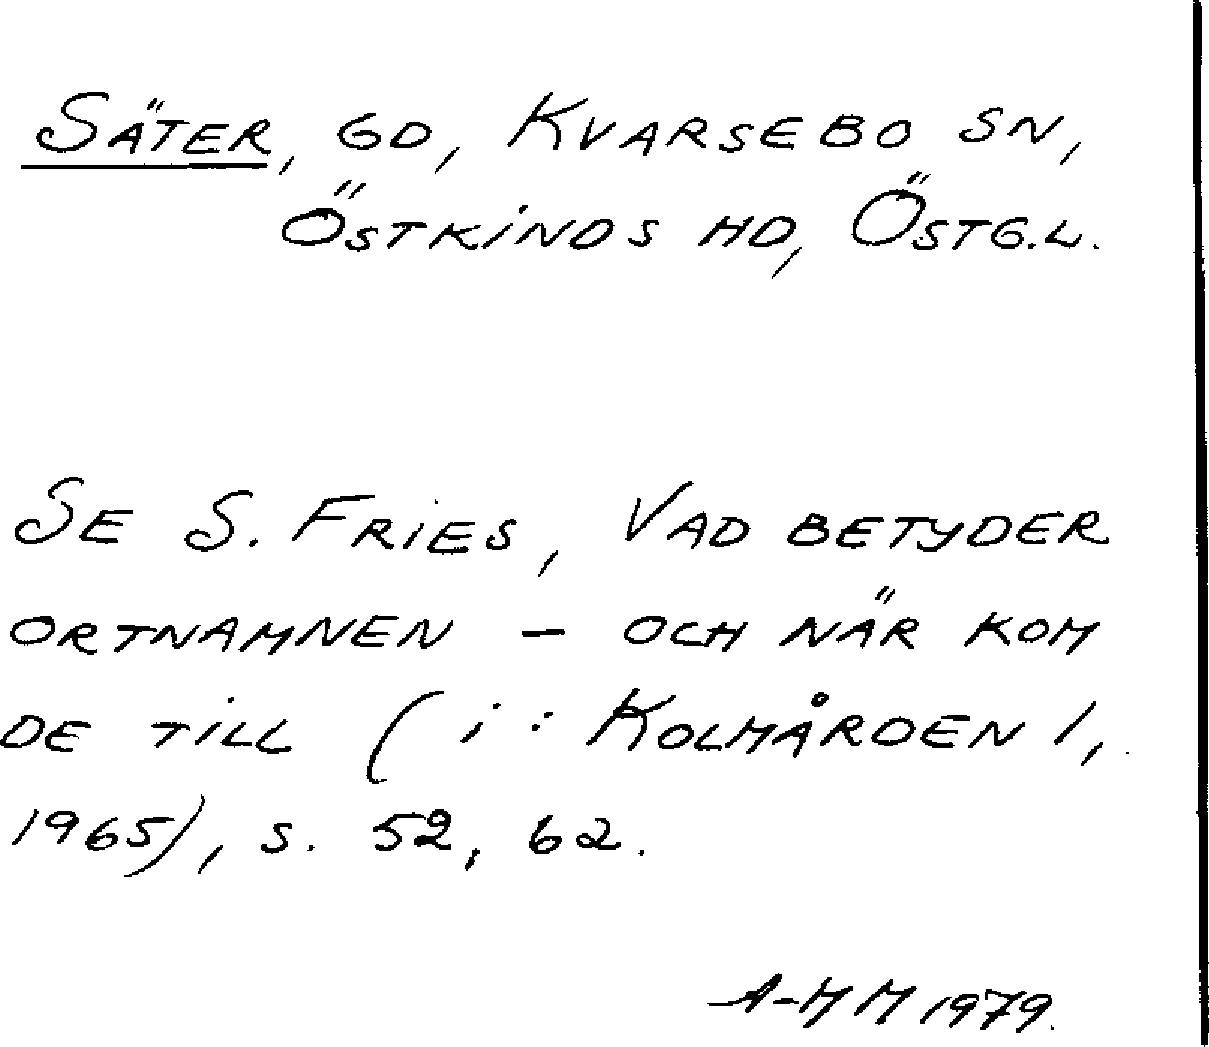 SÄTER, GD, KVARSEBO SN,
ÖSTKINDS HD, ÖSTG.L.
SE S. FRIES, VAD BETYDER
ORTNAMNEN – OCH NÄR KOM
DE TILL (i: KOLMÅRDEN 1,
1965), S. 52, 62.
A-MM 1979.